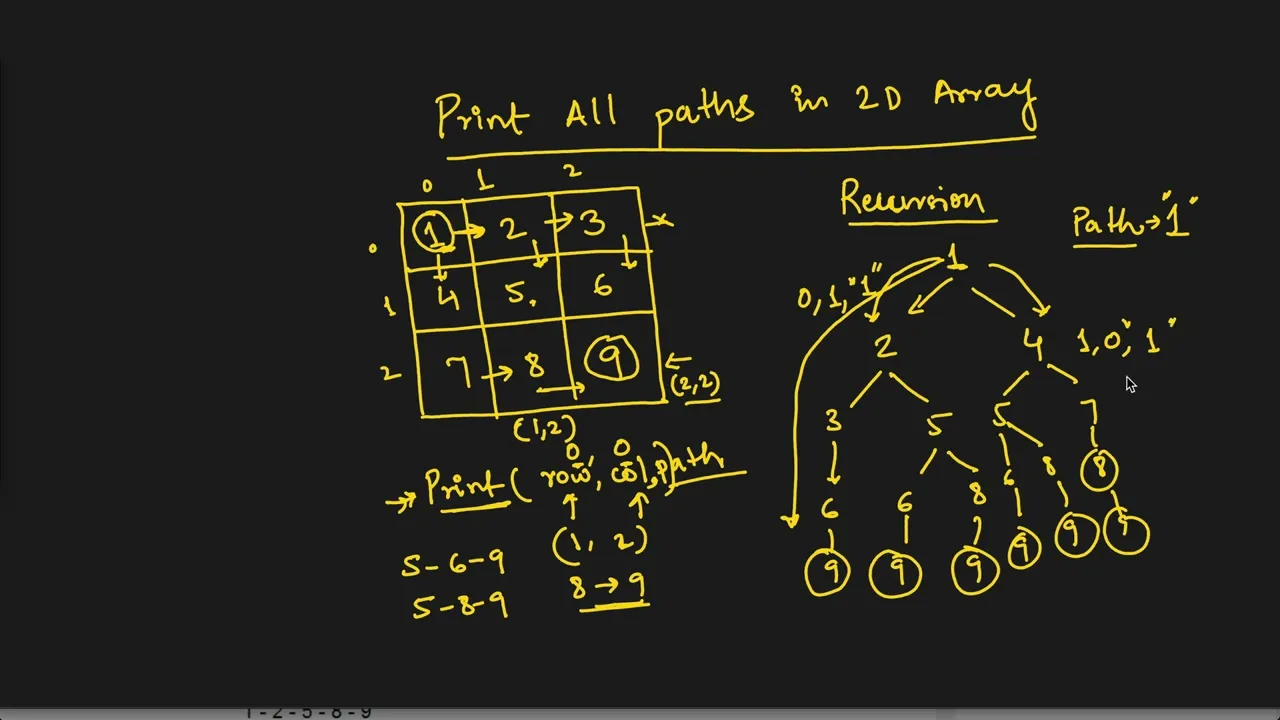 Print All paths in 2D Array
0 1 2
0 1 2 3 x
1 4 5. 6
2 7 8 9
(2,2)
(1,2)
0 0
Print( row, col, path
(1, 2)
5-6-9
8 → 9
5-8-9
Recursion
Path → "1"
1
0, 1, "1"
2 4 1, 0, "1"
3 5 5 7
6 6 8 6 8 8
9 9 9 9 9 9
1-2-5-8-9